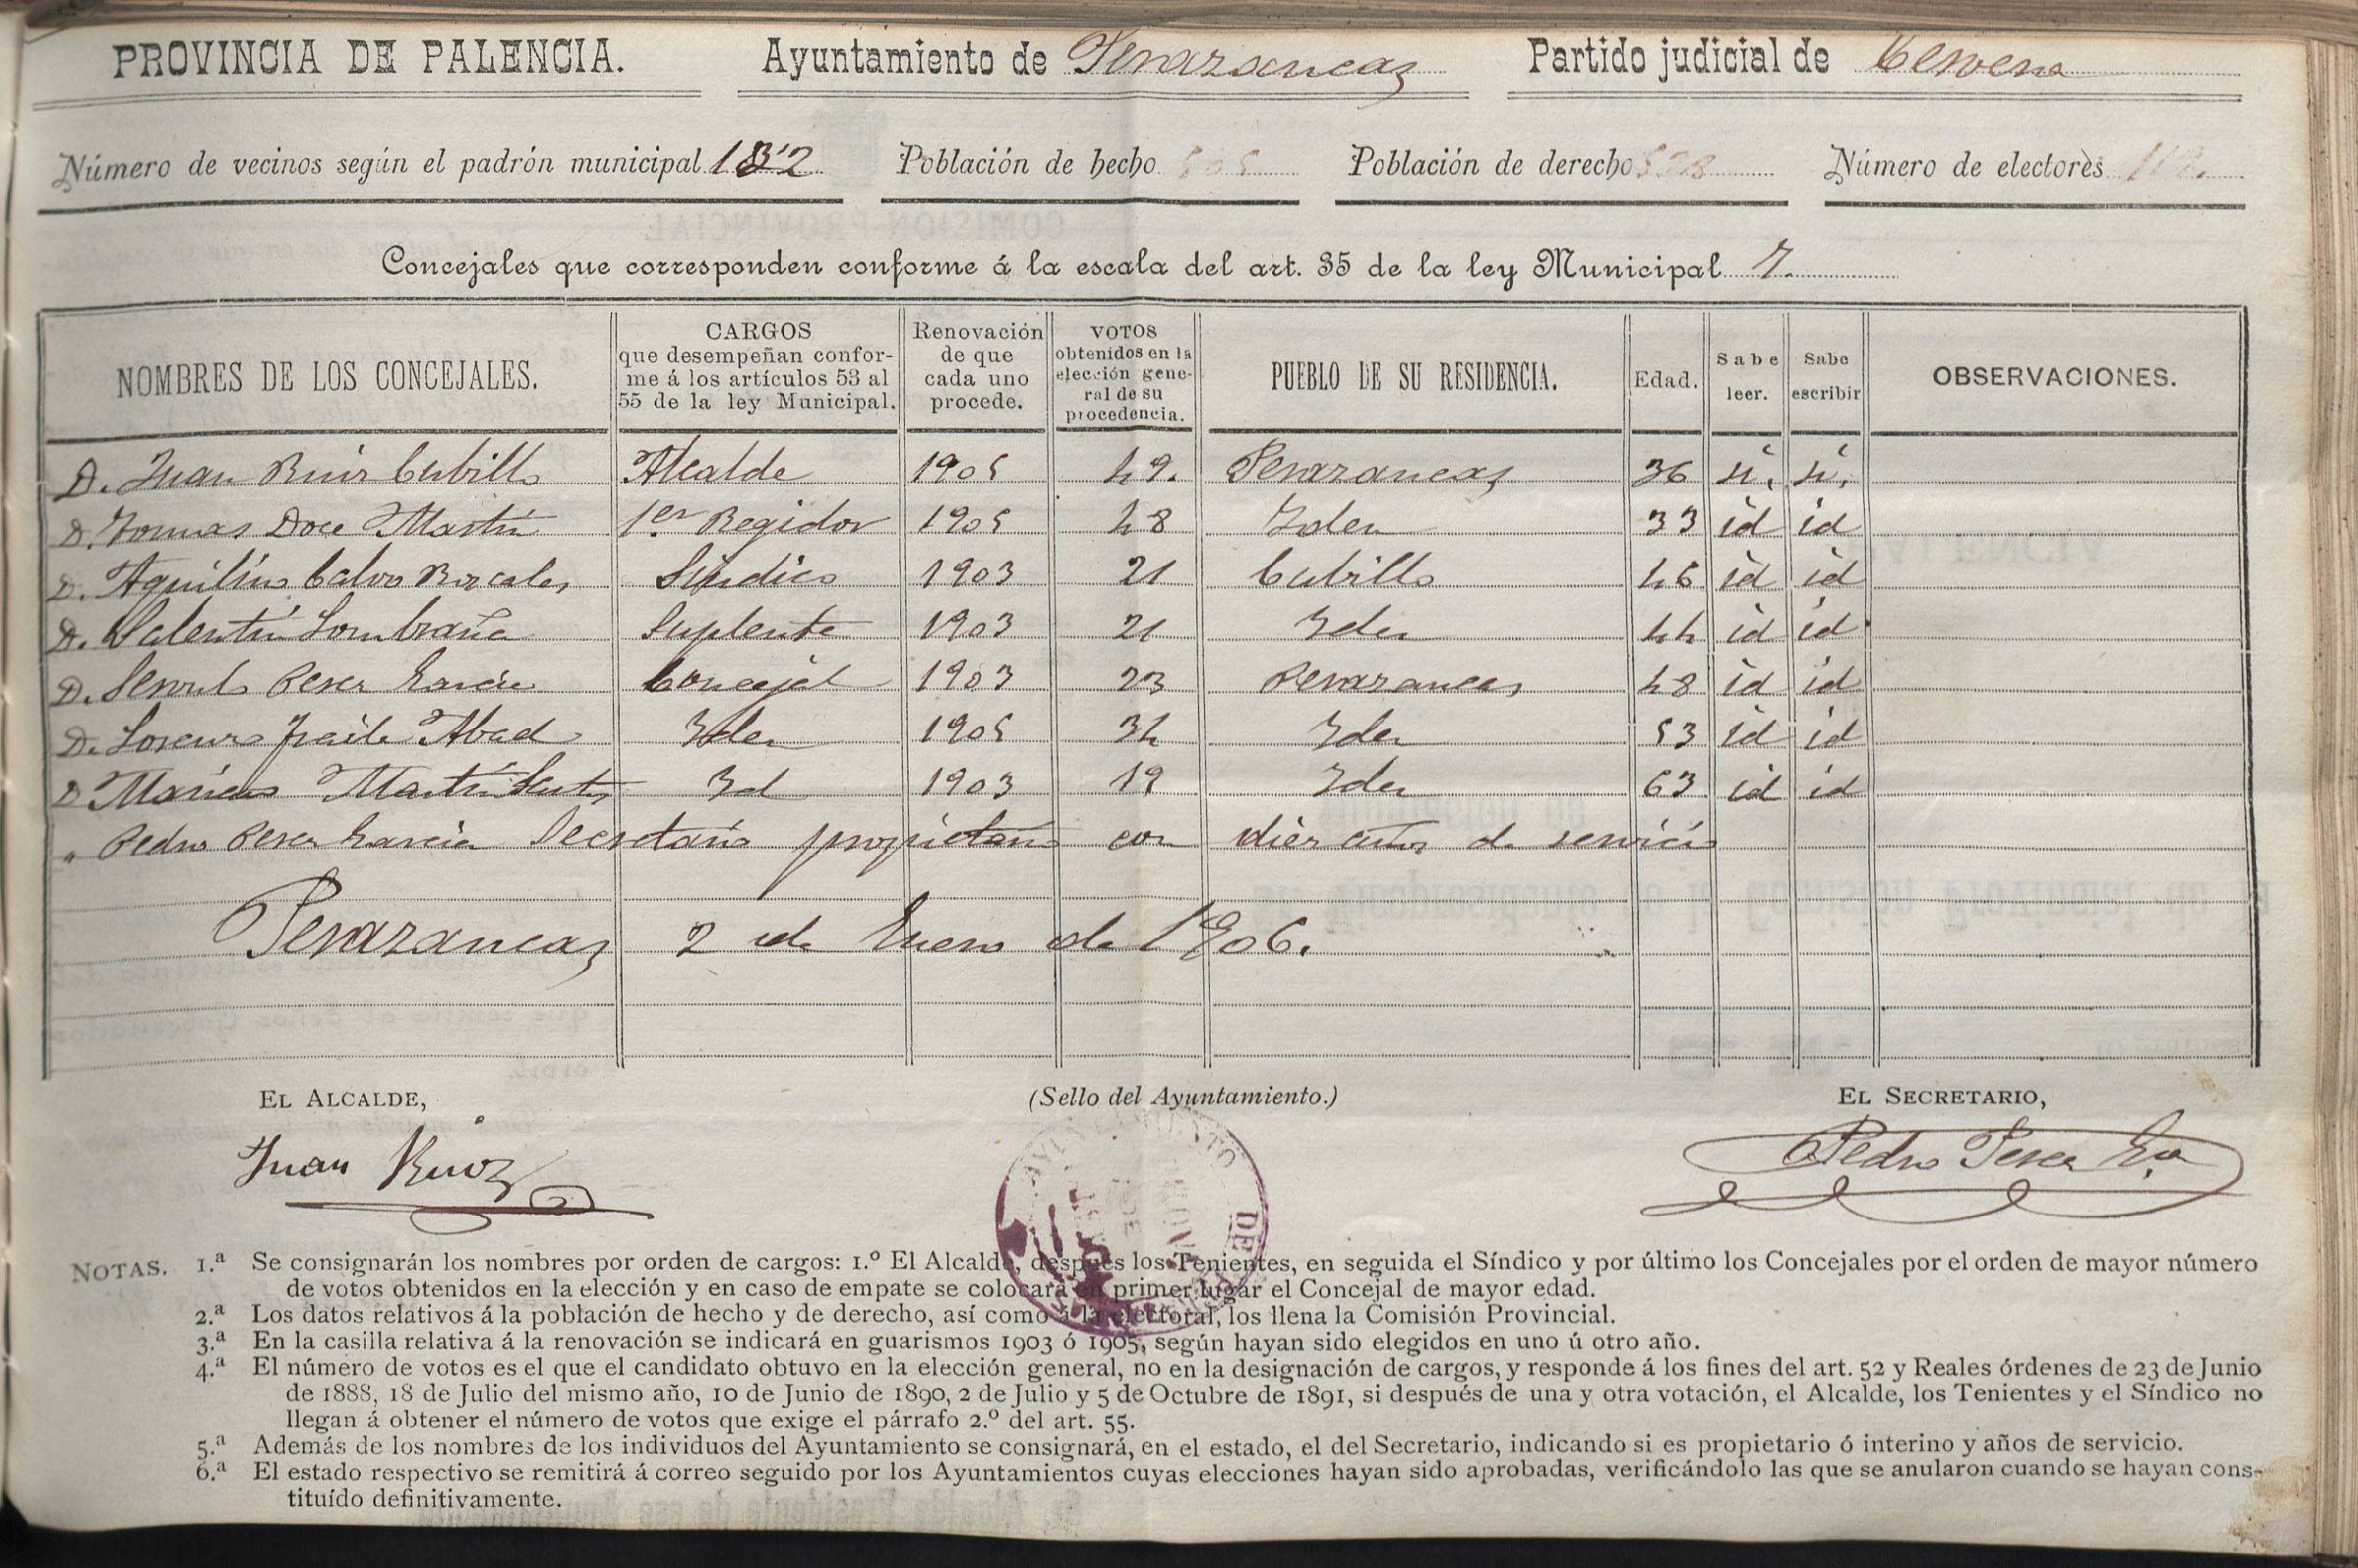 PROVINCIA DE PALENCIA. Ayuntamiento de Perazancas Partido judicial de Cervera
Número de vecinos según el padrón municipal 132 Población de hecho 505 Población de derecho 528 Número de electores 112.
Concejales que corresponden conforme á la escala del art. 35 de la ley Municipal 7.
NOMBRES DE LOS CONCEJALES. CARGOS que desempeñan confor- me á los artículos 53 al 55 de la ley Municipal. Renovación de que cada uno procede. VOTOS obtenidos en la elección gene- ral de su procedencia. PUEBLO DE SU RESIDENCIA. Edad. Sabe leer. Sabe escribir OBSERVACIONES.
D. Juan Ruiz Cubillo Alcalde 1905 49. Perazancas 36 si. si.
D. Tomas Doce Martín 1er Regidor 1905 48 Idem 33 id id
D. Aquilino Calvo Síndico 1903 21 Cubillo 46 id id
D. Valentín Lombraña Suplente 1903 21 Idem 44 id id
D. Perez García Concejal 1903 23 Perazancas 48 id id
D. Lorenzo Fraile Abad Idem 1905 34 Idem 53 id id
D. Martín Id 1903 19 Idem 63 id id
" Pedro Perez García Secretario propietario con diez años de servicio
Perazancas 2 de Enero de 1906.
EL ALCALDE, (Sello del Ayuntamiento.) EL SECRETARIO,
Juan Ruiz Pedro Perez Gía
AYUNTAMIENTO DE
NOTAS. 1.ª Se consignarán los nombres por orden de cargos: 1.º El Alcalde, después los Tenientes, en seguida el Síndico y por último los Concejales por el orden de mayor número
de votos obtenidos en la elección y en caso de empate se colocará en primer lugar el Concejal de mayor edad.
2.ª Los datos relativos á la población de hecho y de derecho, así como á la electoral, los llena la Comisión Provincial.
3.ª En la casilla relativa á la renovación se indicará en guarismos 1903 ó 1905, según hayan sido elegidos en uno ú otro año.
4.ª El número de votos es el que el candidato obtuvo en la elección general, no en la designación de cargos, y responde á los fines del art. 52 y Reales órdenes de 23 de Junio
de 1888, 18 de Julio del mismo año, 10 de Junio de 1890, 2 de Julio y 5 de Octubre de 1891, si después de una y otra votación, el Alcalde, los Tenientes y el Síndico no
llegan á obtener el número de votos que exige el párrafo 2.º del art. 55.
5.ª Además de los nombres de los individuos del Ayuntamiento se consignará, en el estado, el del Secretario, indicando si es propietario ó interino y años de servicio.
6.ª El estado respectivo se remitirá á correo seguido por los Ayuntamientos cuyas elecciones hayan sido aprobadas, verificándolo las que se anularon cuando se hayan cons-
tituído definitivamente.